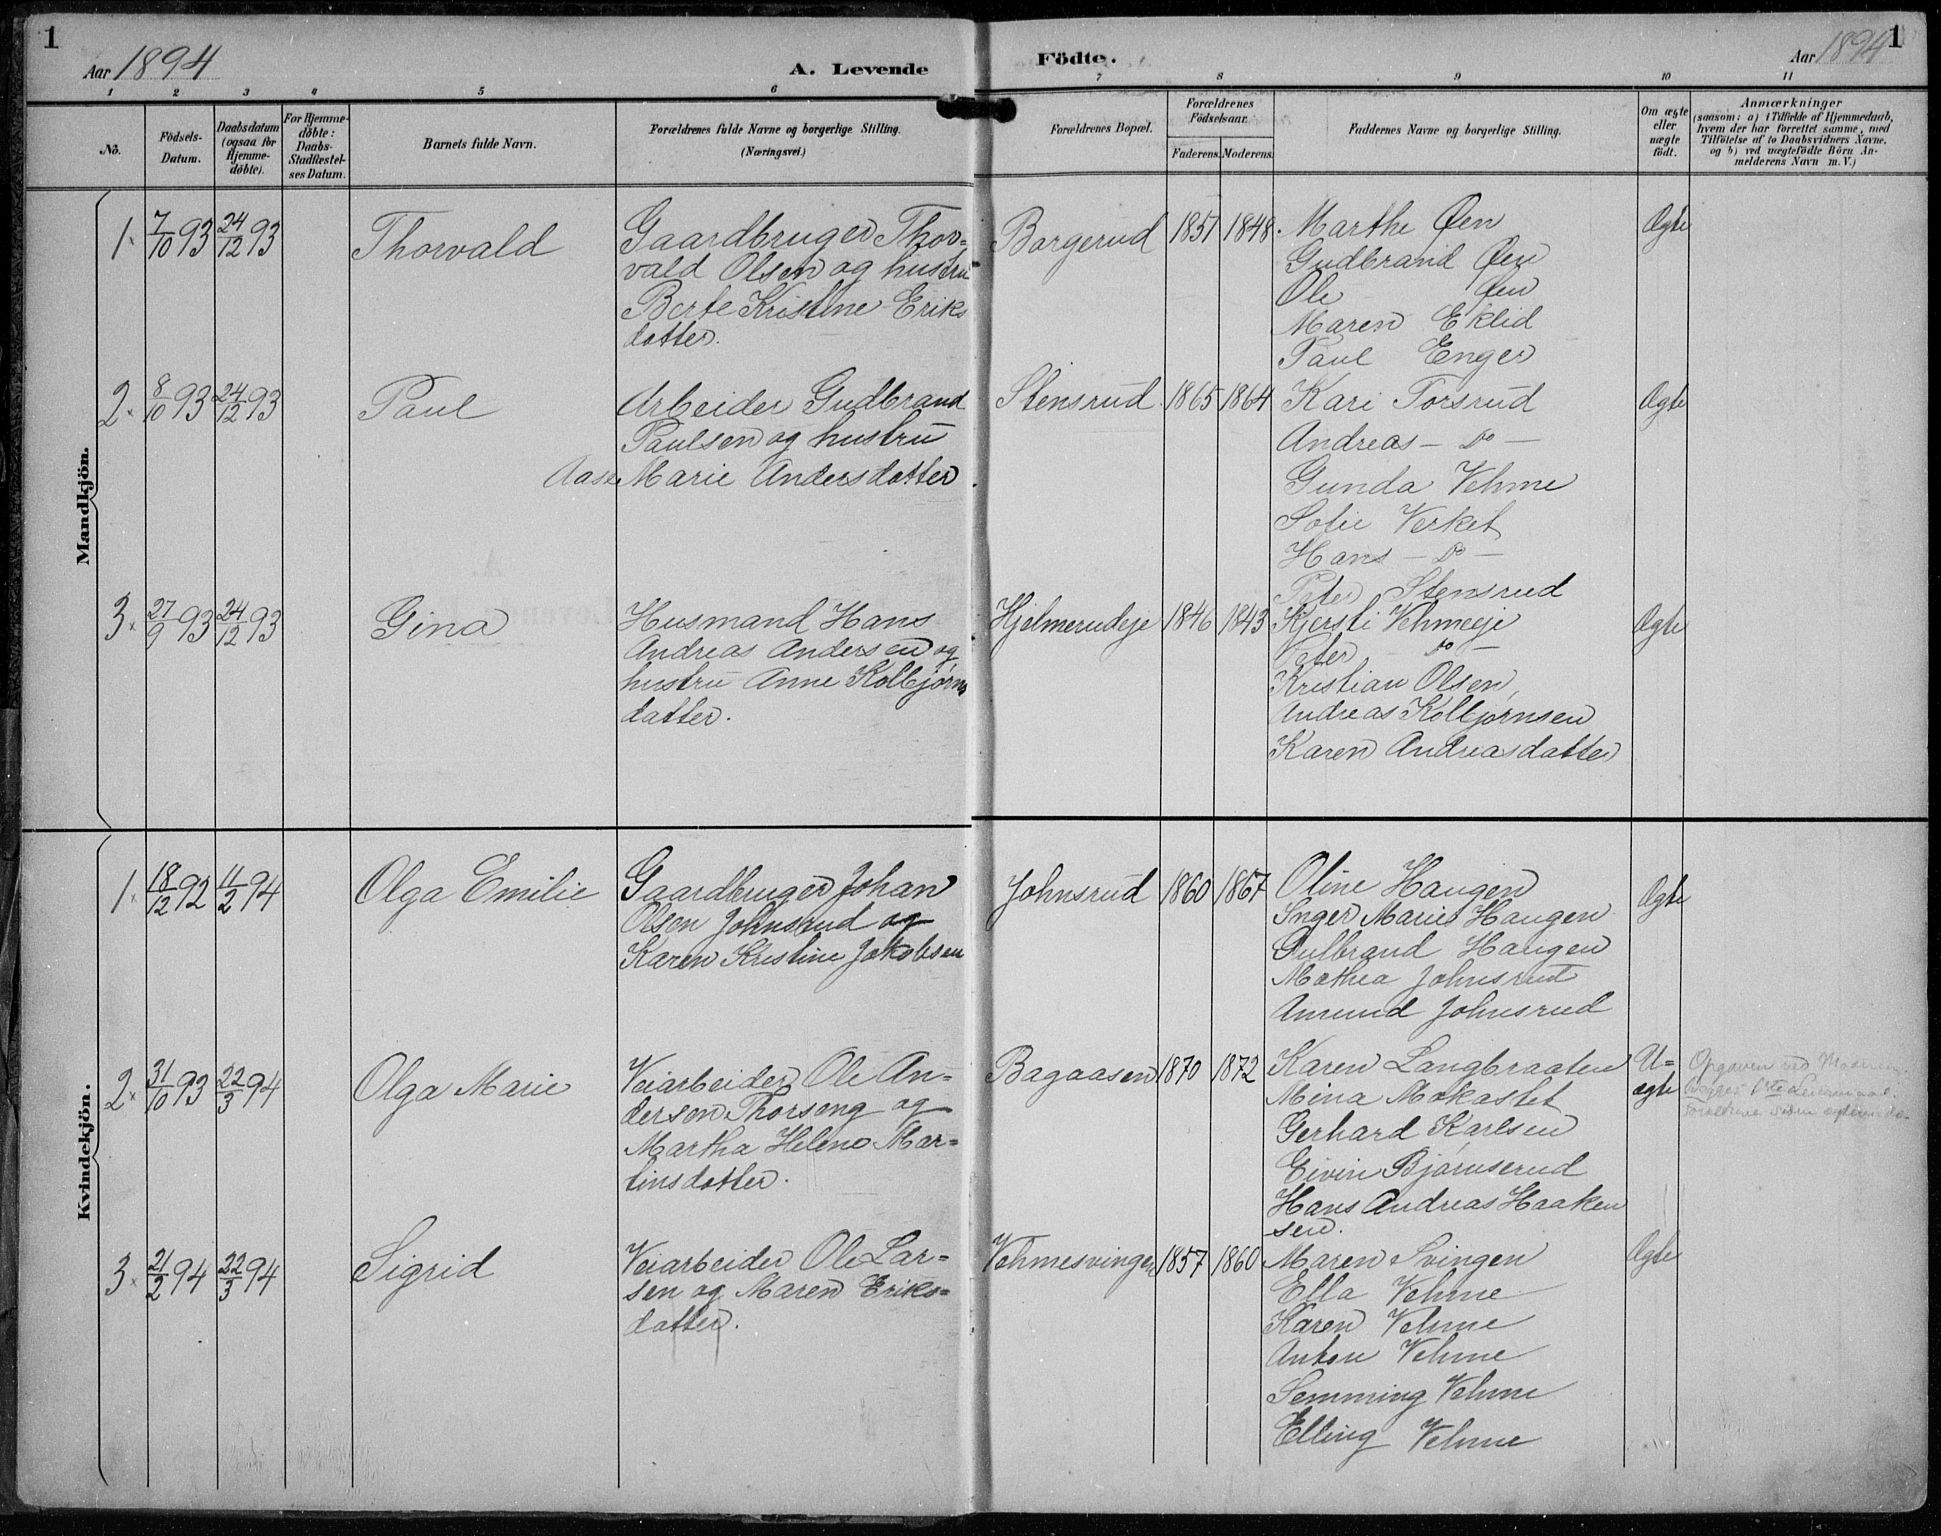 1
Aar 1894
A. Levende
Födte.
Aar 1894
1
1 2 3 4 5 6 7 8 9 10 11
No.
Födsels-
Datum.
Daabsdatum
(ogsaa for
Hjemme-
döbte).
For Hjemme-
döbte:
Daabs-
Stadfæstel-
ses Datum.
Barnets fulde Navn.
Forældrenes fulde Navne og borgerlige Stilling.
(Næringsvei.)
Forældrenes Bopæl.
Forældrenes
Födselsaar.
Faderens.
Moderens.
Faddernes Navne og borgerlige Stilling.
Om ægte
eller
uægte
födt.
Anmærkninger
(saasom: a) i Tilfælde af Hjemmedaab,
hvem der har forrettet samme, med
Tilföielse af to Daabsvidners Navne,
og b) ved uægtefödte Börn An-
melderens Navn m. V.)
Mandkjön.
1 × 7/10 93 24/12 93 Thorvald
Gaardbruger Thor-
vald Olsen og hustru
Berte Kristine Eriks
datter.
Borgerud 1851 1848
Marthe Øen
Gudbrand Øen
Ole Øen
Maren Eklid
Paul Enger
Ægte
2 × 8/10 93 24/12 93 Paul
Arbeider Gudbrand
Paulsen og hustru
Aase Marie Andersdatter
Stensrud 1865 1864
Kari Torsrud
Andreas — Do —
Gunda Vehme
Sofie Verket
Hans — Do —
Peter Stensrud
Ægte
3 × 27/9 93 24/12 93 Gina
Husmand Hans
Andreas Andersen og
hustru Anne Kolbjørns
datter.
Hjelmerudeje 1846 1843
Kjersti Vehmeeje
Peter — Do —
Kristian Olsen,
Andreas Kolbjørnsen
Karen Andreasdatter
Ægte
Kvindekjön.
1 × 18/12 92 11/2 94 Olga Emilie
Gaardbruger Johan
Olsen Johnsrud og
Karen Kristine Jakobsen
Johnsrud 1860 1867
Oline Haugen
Inger Marie Haugen
Gulbrand Haugen
Mathea Johnsrud
Amund Johnsrud
Ægte
2 × 31/10 93 22/3 94 Olga Marie
Veiarbeider Ole An-
dersen Thorseng og
Martha Helene Mar-
tinsdatter.
Bagaasen 1870 1872
Karen Langbraaten
Mina Mokastet
Gerhard Karlsen
Eivin Bjørnserud
Hans Andreas Haaken
sen.
U-
ægte
Opgaven ved Moderen
begges 1ste Leiermaal.
3 × 21/2 94 22/3 94 Sigrid
Veiarbeider Ole Lar-
sen og Maren Eriks-
datter.
Vehmesvingen 1857 1860
Maren Svingen
Ella Vehme
Karen Vehme
Anton Vehme
Semming Vehme
Elling Vehme
Ægte